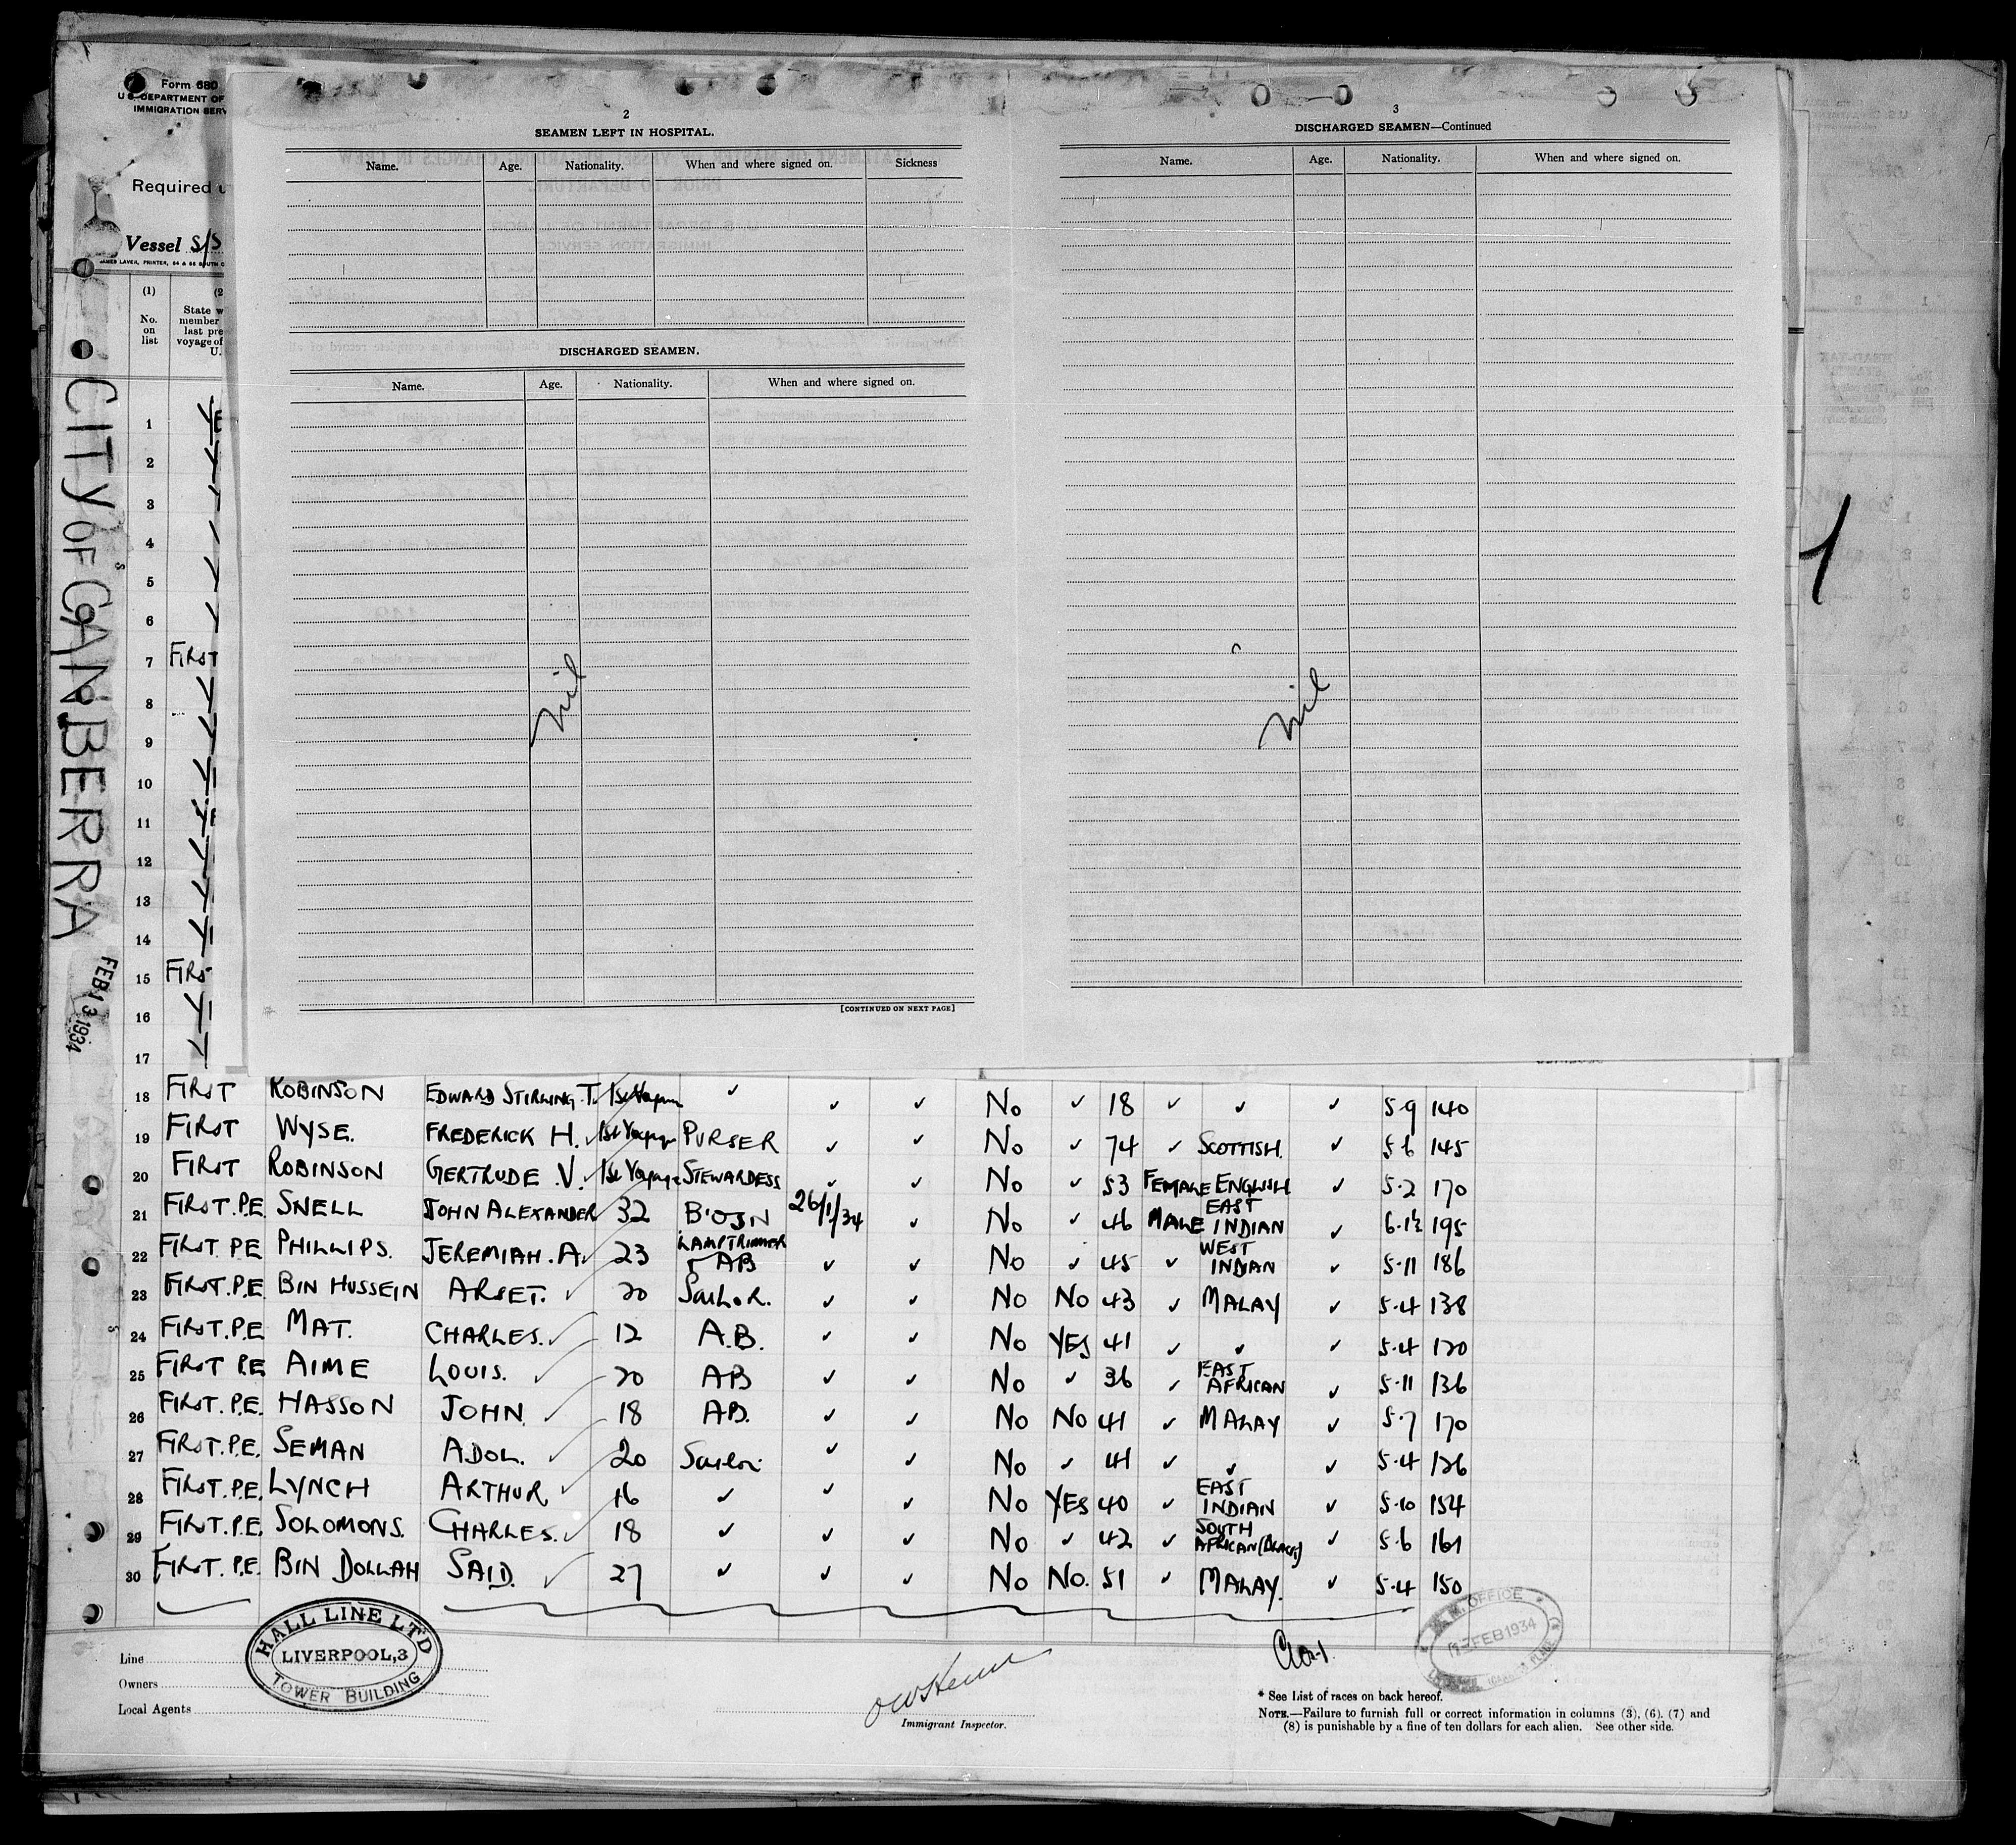 Form 680
U.S. DEPARTMENT OF
IMMIGRATION SERV
Required u
Vessel S/S
(1)
No. on list
State w
member
last pre
voyage of
U.
CITY OF CANBERRA
FEB 13 1934
1
2
3
4
5
6
7 FIRST
8
9
10
11
12
13
14
15 FIRS
16
17
2
SEAMEN LEFT IN HOSPITAL.
Name. Age. Nationality. When and where signed on. Sickness
DISCHARGED SEAMEN.
Name. Age. Nationality. When and where signed on.
Nil
[CONTINUED ON NEXT PAGE]
3
DISCHARGED SEAMEN—Continued
Name. Age. Nationality. When and where signed on.
Nil
1
18 FIRST ROBINSON EDWARD STIRLING T. 1st Voyage ✓ ✓ ✓ No ✓ 18 ✓ ✓ ✓ 5.9 140
19 FIRST WYSE. FREDERICK H. ✓ 1st Voyage PURSER ✓ ✓ No ✓ 74 ✓ SCOTTISH. ✓ 5.6 145
20 FIRST ROBINSON GERTRUDE .V. ✓ 1st Voyage STEWARDESS ✓ ✓ No ✓ 53 FEMALE ENGLISH ✓ 5.2 170
21 FIRST.P.E. SNELL JOHN ALEXANDER 32 BOSN 26/1/34 ✓ No ✓ 46 MALE EAST INDIAN ✓ 6.1½ 195
22 FIRST.P.E. PHILLIPS. JEREMIAH.A. ✓ 23 LAMPTRIMMER AB ✓ ✓ No ✓ 45 ✓ WEST INDIAN ✓ 5.11 186
23 FIRST.P.E. BIN HUSSEIN ARSET. ✓ 20 SAILOR. ✓ ✓ No No 43 ✓ MALAY ✓ 5.4 138
24 FIRST.P.E. MAT. CHARLES. ✓ 12 A.B. ✓ ✓ No YES 41 ✓ ✓ ✓ 5.4 120
25 FIRST P.E. AIME LOUIS. ✓ 20 AB ✓ ✓ No ✓ 36 ✓ EAST AFRICAN ✓ 5.11 136
26 FIRST.P.E. HASSON JOHN. ✓ 18 AB. ✓ ✓ No No 41 ✓ MALAY ✓ 5.7 170
27 FIRST.P.E. SEMAN ADOL. ✓ 20 Sailor ✓ ✓ No ✓ 41 ✓ ✓ ✓ 5.4 126
28 FIRST.P.E. LYNCH ARTHUR ✓ 16 ✓ ✓ ✓ No YES 40 ✓ EAST INDIAN ✓ 5.10 154
29 FIRST.P.E. SOLOMONS. CHARLES. ✓ 18 ✓ ✓ ✓ No ✓ 42 ✓ SOUTH AFRICAN (BLACK) ✓ 5.6 161
30 FIRST.P.E. BIN DOLLAH SAID. ✓ 27 ✓ ✓ ✓ No No. 51 ✓ MALAY. ✓ 5.4 150
Line
Owners
Local Agents
HALL LINE LTD
LIVERPOOL,3
TOWER BUILDING
Immigrant Inspector.
OFFICE
FEB 1934
* See List of races on back hereof.
NOTE.—Failure to furnish full or correct information in columns (3), (6), (7) and
(8) is punishable by a fine of ten dollars for each alien. See other side.